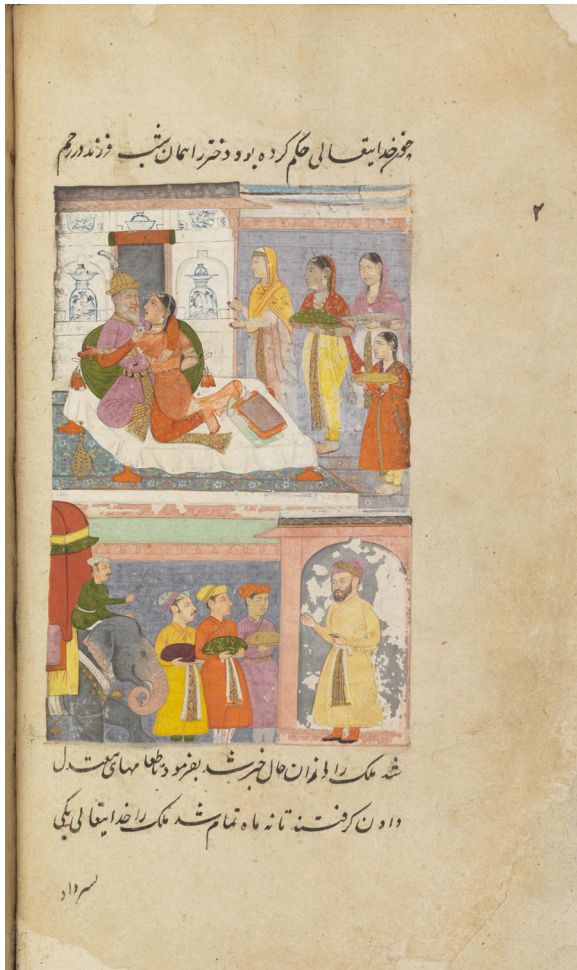 چون خدایتعالی حکم کرده بود دختر را همان شب فرزند در رحم
۲
شد ملک را از ان حال خبر شد بفرمود تا طعامهای معتدل
دادن گرفتند تا نه ماه تمام شد ملک را خدایتعالی یکی
پسر داد